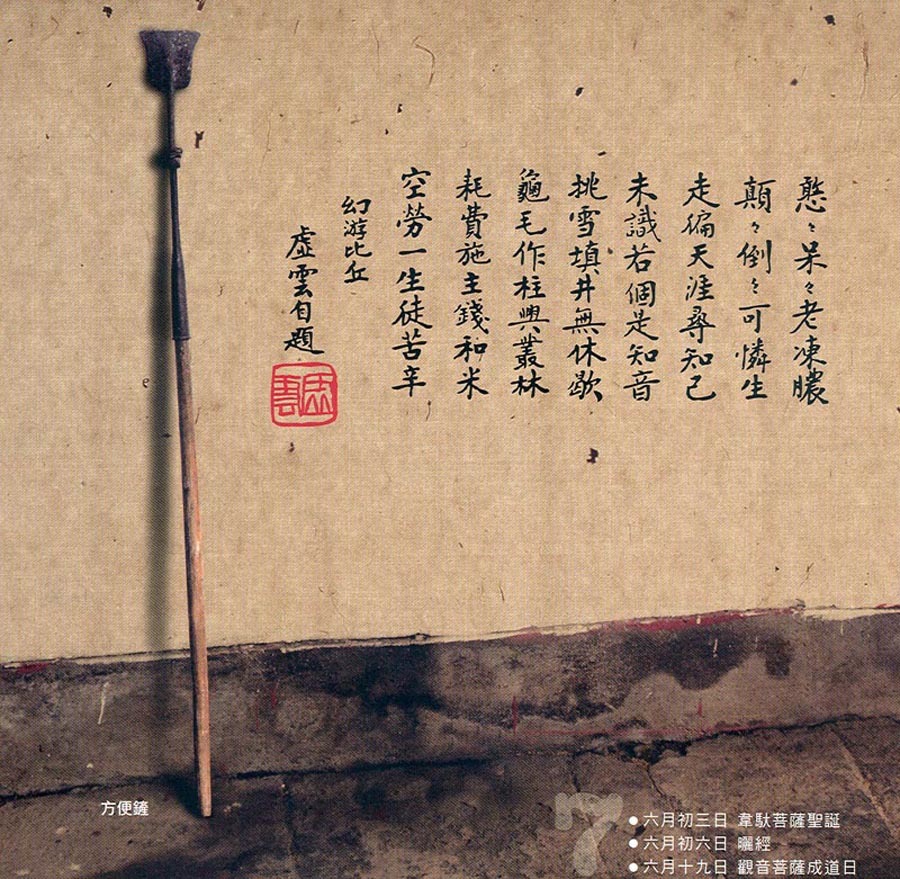 憨々呆々老凍膿
顛々倒々可憐生
走徧天涯尋知己
未識若個是知音
挑雪填井無休歇
龜毛作柱興叢林
耗費施主錢和米
空勞一生徒苦辛
幻游比丘
虛雲自題
虛雲
方便鏟
7
●六月初三日 韋馱菩薩聖誕
●六月初六日 曬經
●六月十九日 觀音菩薩成道日